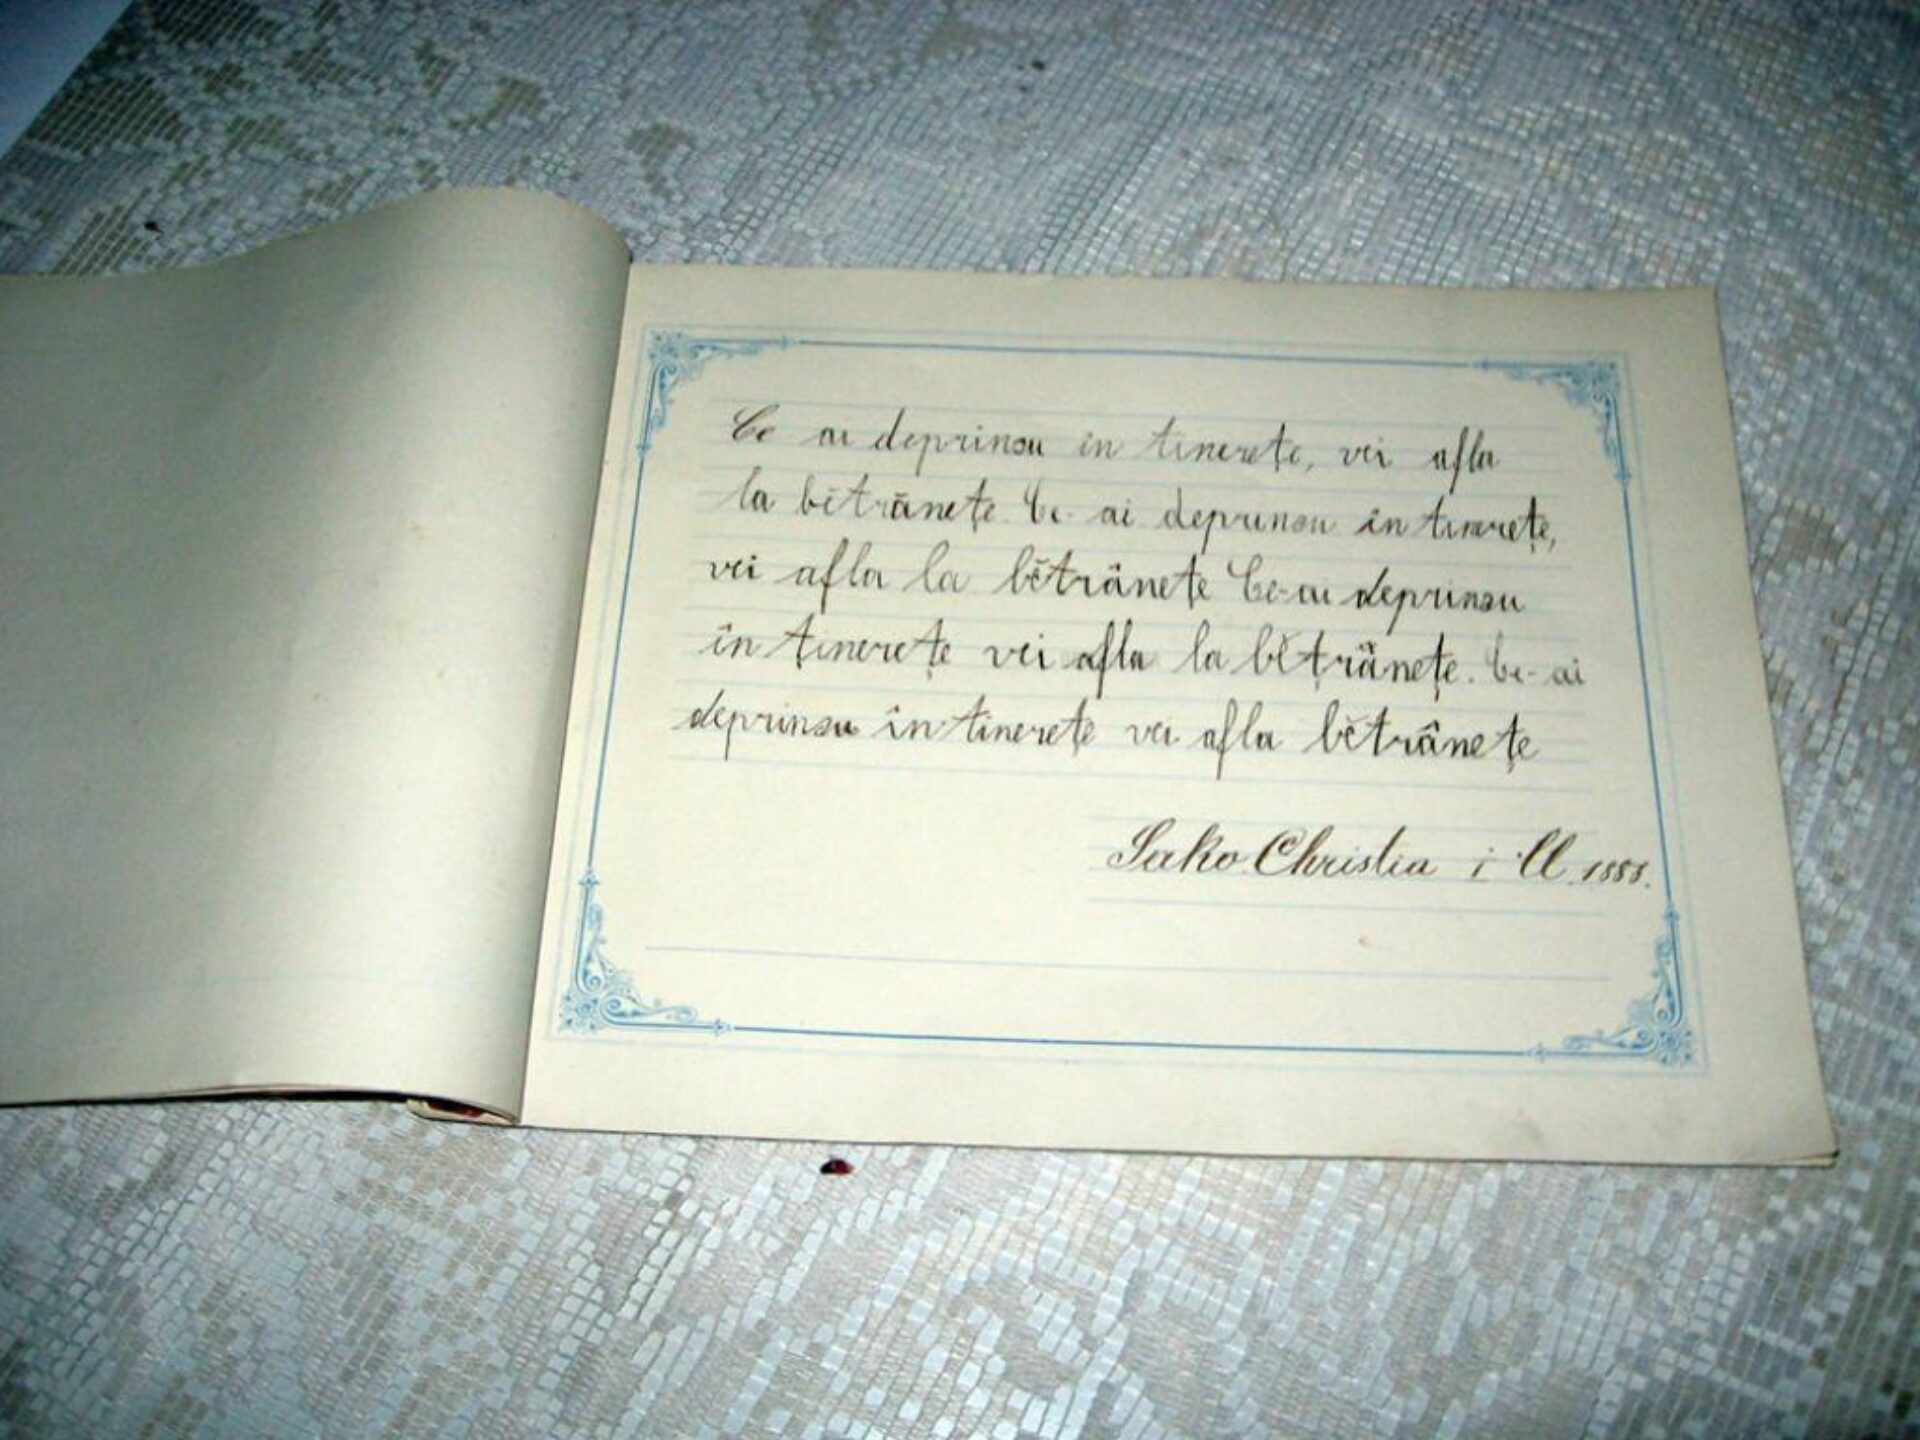 Ce ai deprinsu in tinerețe, vei afla
la bĕtrânețe Ce-ai deprinsu în tinerețe,
vei afla la bĕtrânețe Ce-ai deprinsu
în ținerețe vei afla la bĕțrânețe. Ce-ai
deprinsu în tinerețe vei afla bĕtrânețe
Sako Christia i Cl. 1888.